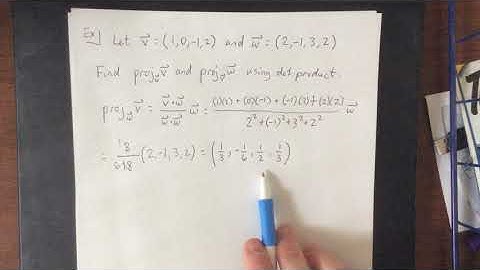 Ex) Let v⃗ = (1, 0, -1, 2) and w⃗ = (2, -1, 3, 2)
Find proj_w v⃗ and proj_v w⃗ using dot product.
proj_w v⃗ = (v⃗·w⃗)/(w⃗·w⃗) w⃗ = ((1)(2) + (0)(-1) + (-1)(3) + (2)(2))/(2² + (-1)² + 3² + 2²) w⃗
= (2, -1, 3, 2) = (1/3, -1/6, 1/2, 1/3)